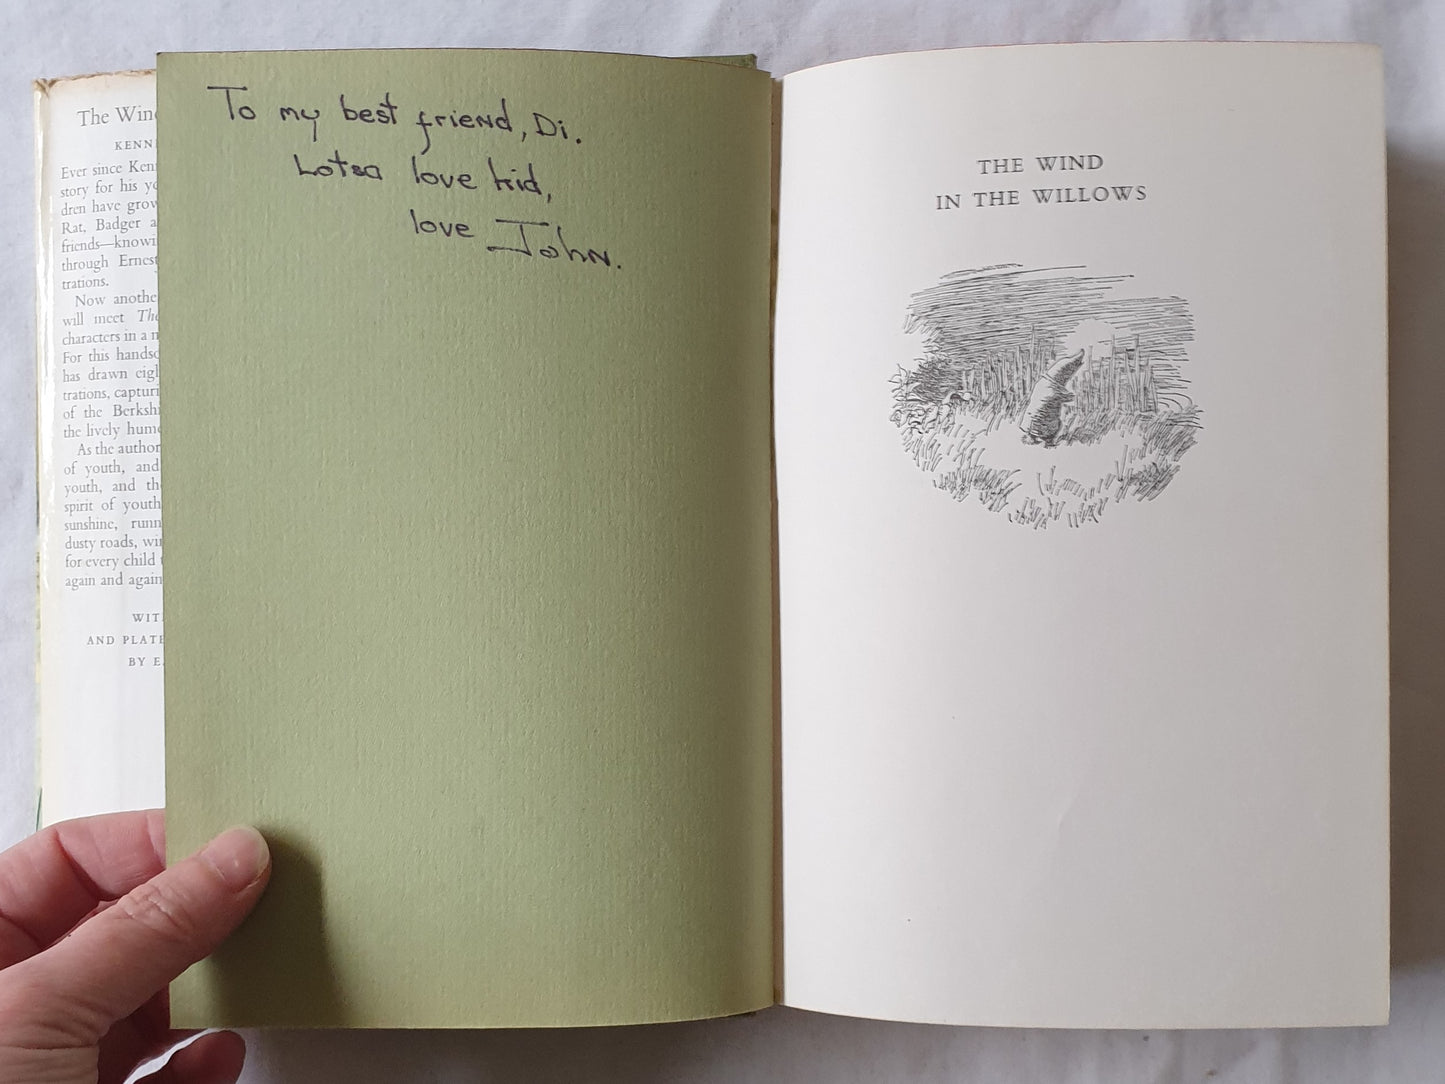 The Wind
KENNE
Ever since Ken
story for his yo
dren have grow
Rat, Badger a
friends—knowi
through Ernest
trations.
Now anothe
will meet The
characters in a n
For this handso
has drawn eigh
trations, capturi
of the Berkshi
the lively humo
As the author
of youth, and
youth, and the
spirit of youth
sunshine, runn
dusty roads, win
for every child t
again and again
WITH
AND PLATE
BY E.
To my best friend, Di.
Lotsa love kid,
love John.
THE WIND
IN THE WILLOWS